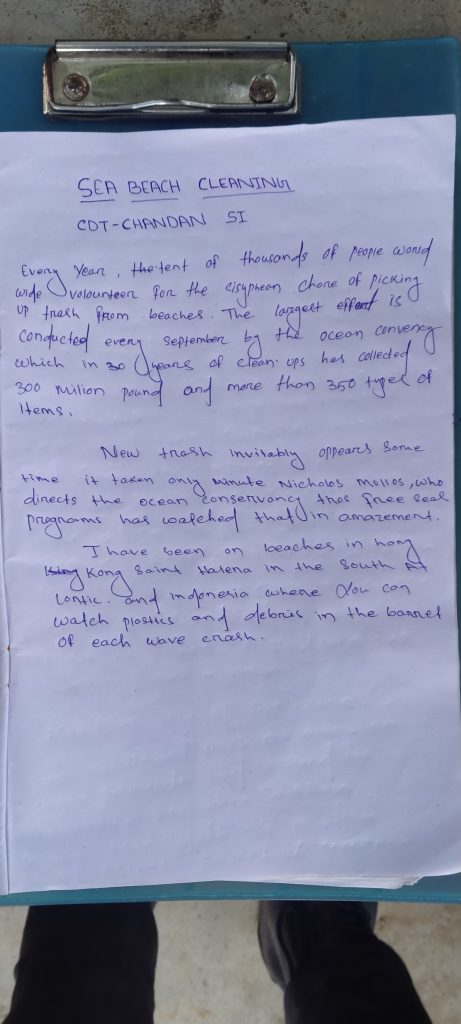 SEA BEACH CLEANING
CDT-CHANDAN SI
Every Year, the tent of thousands of people world
wide volounteer for the sisyphean chore of picking
up trash from beaches. The largest effort is
conducted every september by the ocean convency
which in 30 years of clean-ups has colleted
300 Million pound and more than 350 types of
Items.
New trash invitably appears some
time it taken only minute Nicholos Mollos, who
directs the ocean conservancy thos free seas
programs has watched that in amazement.
I have been on beaches in hong
Kong Saint Halena in the South At
lantic. and indonesia where you can
watch plastics and debris in the barrel
of each wave crash.